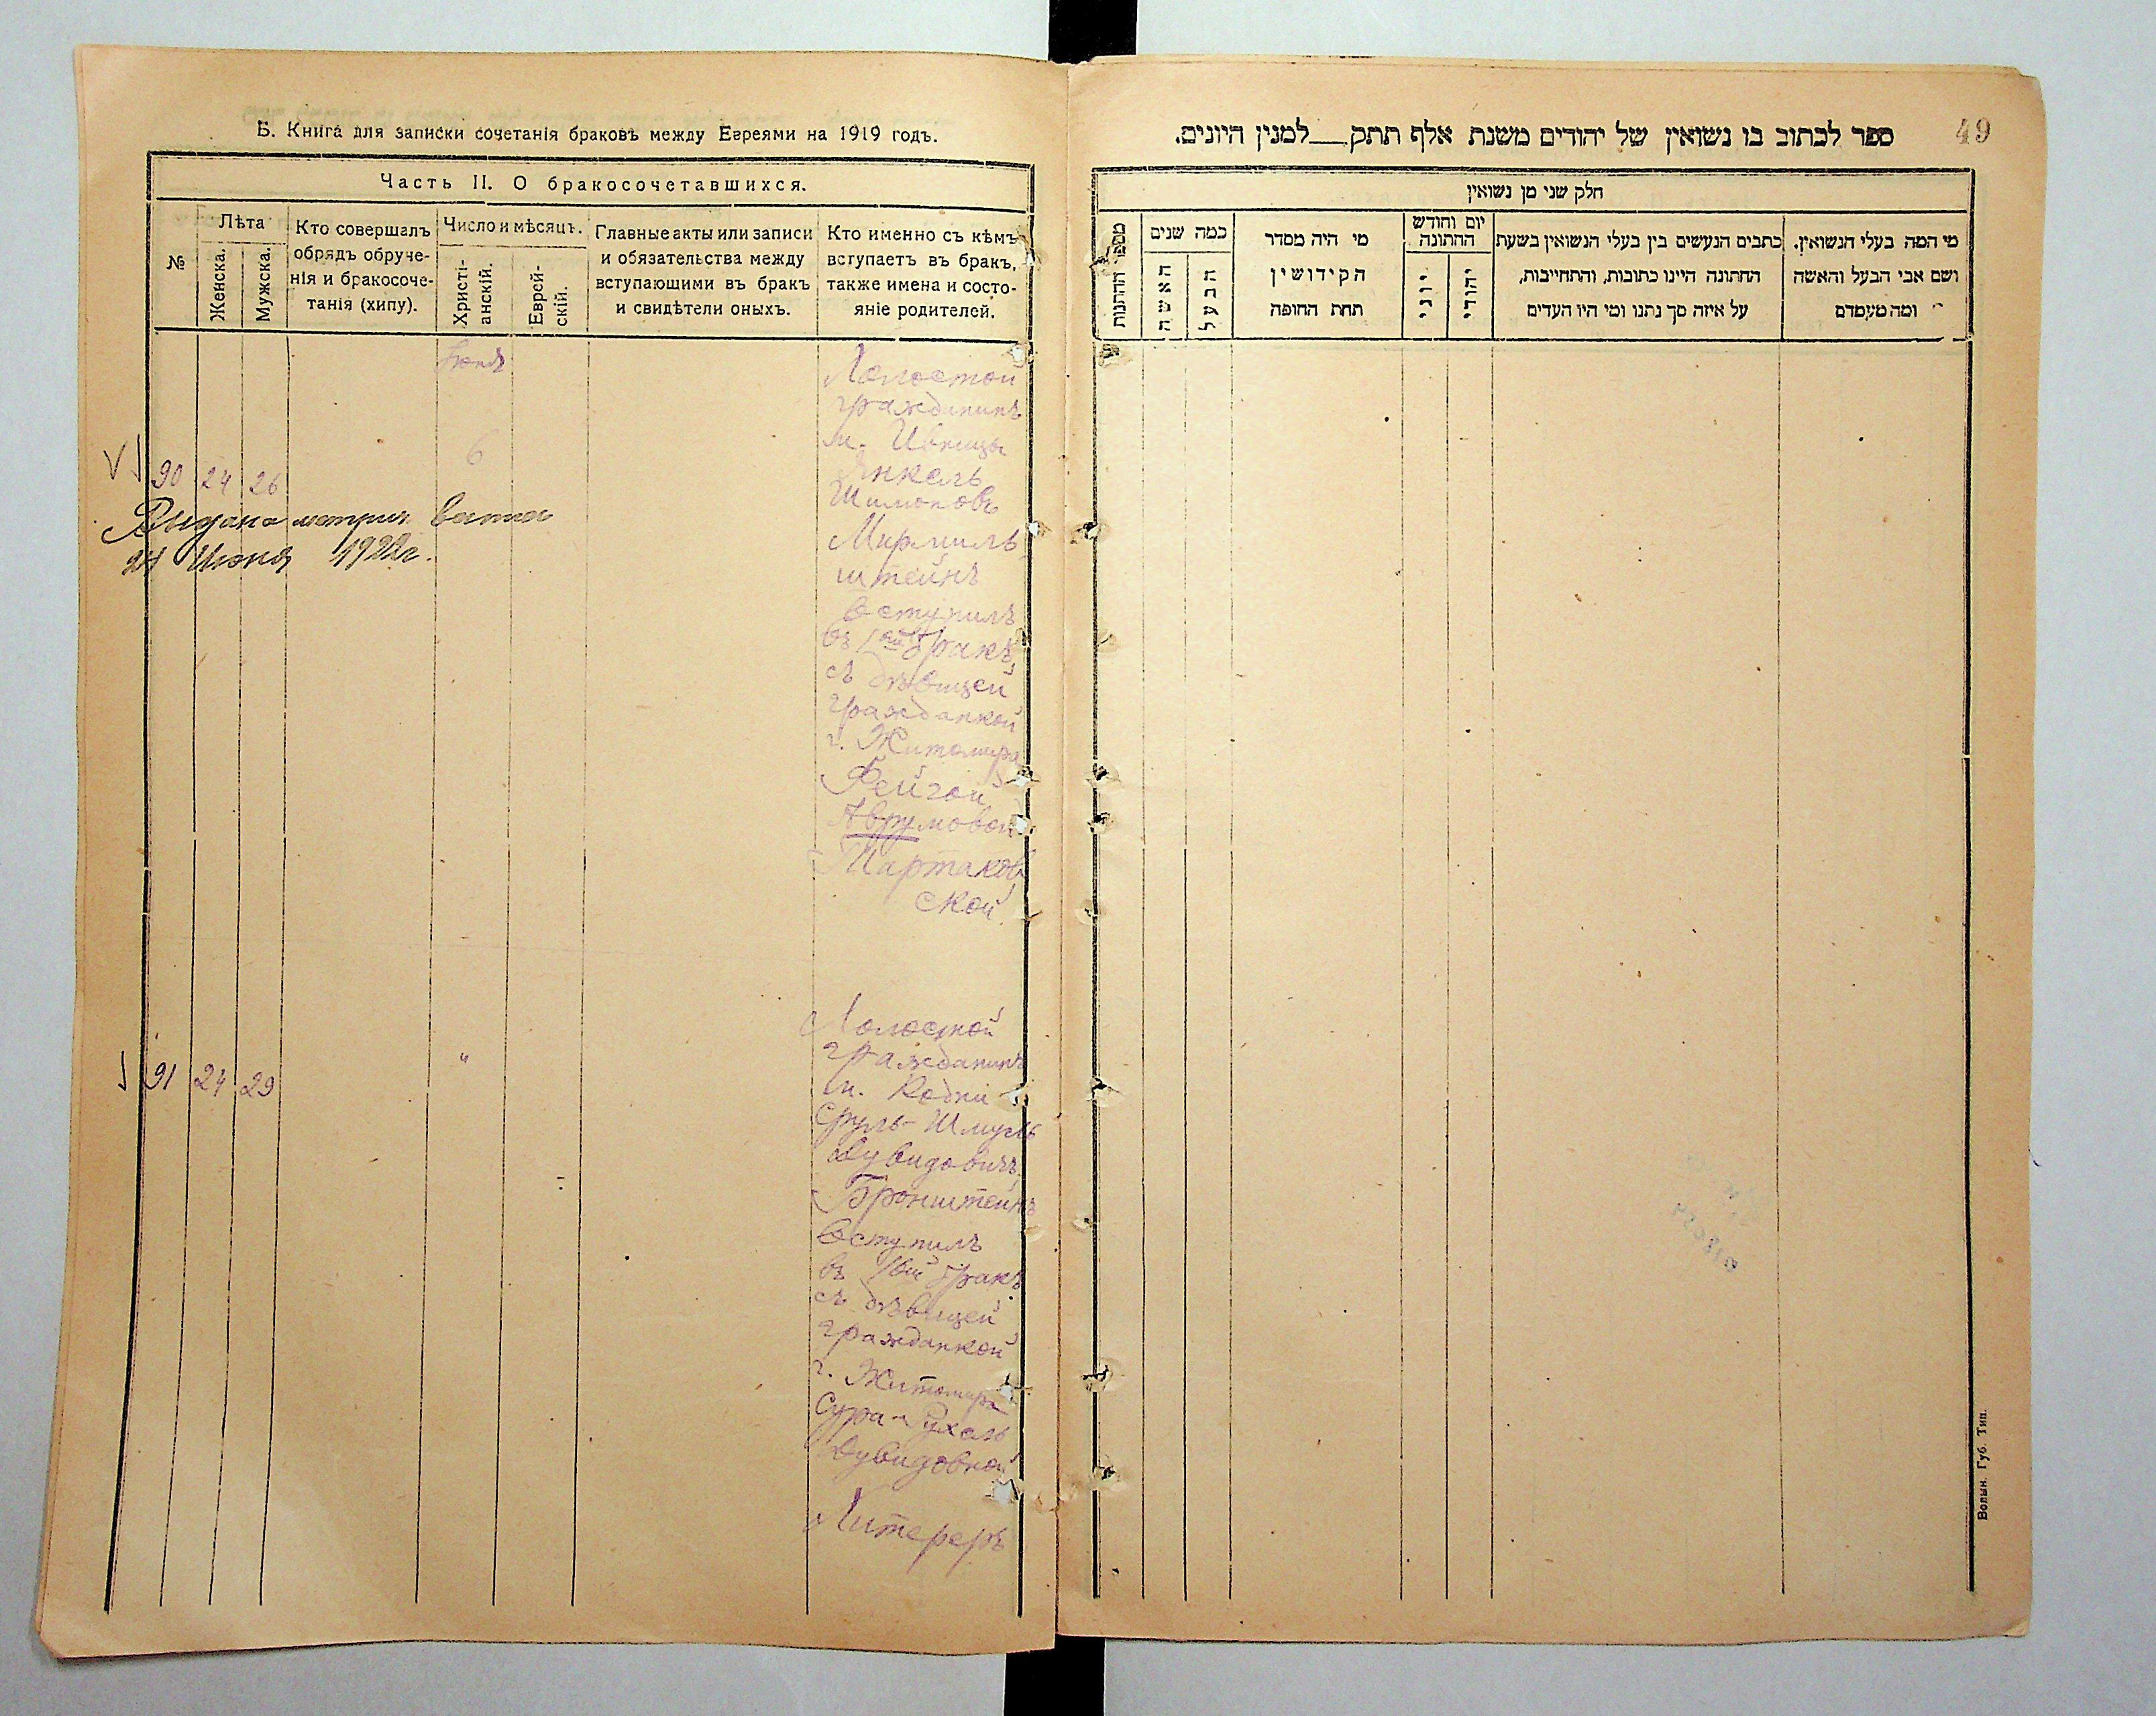 Б. Книга для записки сочетанія браковъ между Евреями на 1919 годъ.
Часть II. О бракосочетавшихся.
№
Лѣта
Женска.
Мужска.
Кто совершалъ
обрядъ обруче-
нія и бракосоче-
танія (хипу).
Число и мѣсяцъ.
Христі-
анскій.
Еврей-
скій.
Главные акты или записи
и обязательства между
вступающими въ бракъ
и свидѣтели оныхъ.
Кто именно съ кѣмъ
вступаетъ въ бракъ,
также имена и состо-
яніе родителей.
Іюнь
90 24 26
6
Холостой
гражданинъ
м. Ивницы
Янкель
Шимоновъ
Мирмиль
штейнъ
вступилъ
въ 1ый бракъ
съ дѣвицей
гражданкой
г. Житомира
Фейгой
Аврумовой
Партаков
ской
Выдана метрич.
24 Июня 1922г.
91 24 29
"
Холостой
гражданинъ
м. Кодни
Сруль-Шмуль
Дувидовичъ
Бронштейнъ
вступилъ
въ 1ый бракъ
съ дѣвицей
гражданкой
г. Житомира
Сура-Рухель
Дувидовной
Литереръ
49
ספר לכתוב בו נשואין של יהודים משנת אלף תתק___למנין היונים.
חלק שני מן נשואין
מספר החתונות
כמה שנים
האשה
הבעל
מי היה מסדר
הקידושין
תחת החופה
יום וחודש
החתונה
יוני
יהודי
כתבים הנעשים בין בעלי הנשואין בשעת
החתונה היינו כתובות, והתחייבות,
על איזה סך נתנו ומי היו העדים
מי המה בעלי הנשואין,
ושם אבי הבעל והאשה
ומה מעמדם
Волын. Губ. Тип.